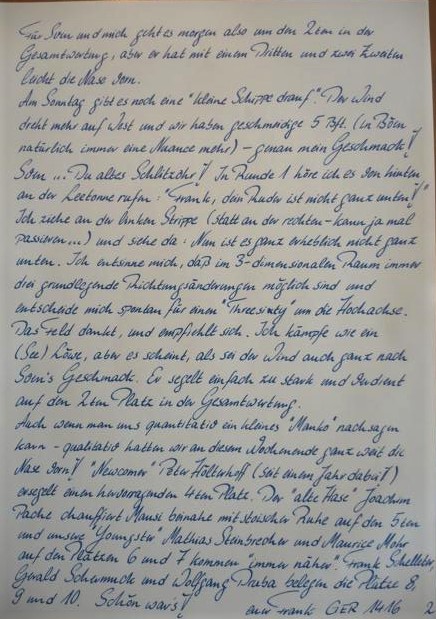 Für Sven und mich geht es morgen also um den 2ten in der
Gesamtwertung, aber er hat mit einem Dritten und zwei Zweiten
leicht die Nase vorn.
Am Sonntag gibt es noch eine "kleine Schippe drauf". Der Wind
dreht mehr auf West und wir haben geschmeidige 5 Bft. (in Böen
natürlich immer eine Nuance mehr) - genau mein Geschmack!
Sven ... Du altes Schlitzohr! In Runde 1 höre ich es von hinten
an der Leetonne rufen: "Frank, dein Ruder ist nicht ganz unten!"
Ich ziehe an der linken Strippe (statt an der rechten - kann ja mal
passieren...) und siehe da: Nun ist es ganz erheblich nicht ganz
unten. Ich entsinne mich, daß im 3-dimensionalen Raum immer
drei grundlegende Richtungsänderungen möglich sind und
entscheide mich spontan für einen "Threesixty" um die Hochachse.
Das Feld dankt, und empfiehlt sich. Ich kämpfe wie ein
(See) Löwe, aber es scheint, als sei der Wind auch ganz nach
Sven's Geschmack. Er segelt einfach zu stark und verdient
auf den 2ten Platz in der Gesamtwertung.
Auch wenn man uns quantitativ ein kleines "Manko" nachsagen
kann - qualitativ hatten wir an diesem Wochenende ganz weit die
Nase vorn! "Newcomer" Peter Hölterhoff (seit einem Jahr dabei!)
ersegelt einen hervorragenden 4ten Platz. Der "alte Hase" Joachim
chauffiert Mausi beinahe mit stoischer Ruhe auf den 5ten
und unsere "Youngster" Mathias Steinbrecher und Maurice Mohr
auf den Plätzen 6 und 7 kommen "immer näher". Frank
und Wolfgang belegen die Plätze 8,
9 und 10. Schön war's! euer Frank GER 1416 2